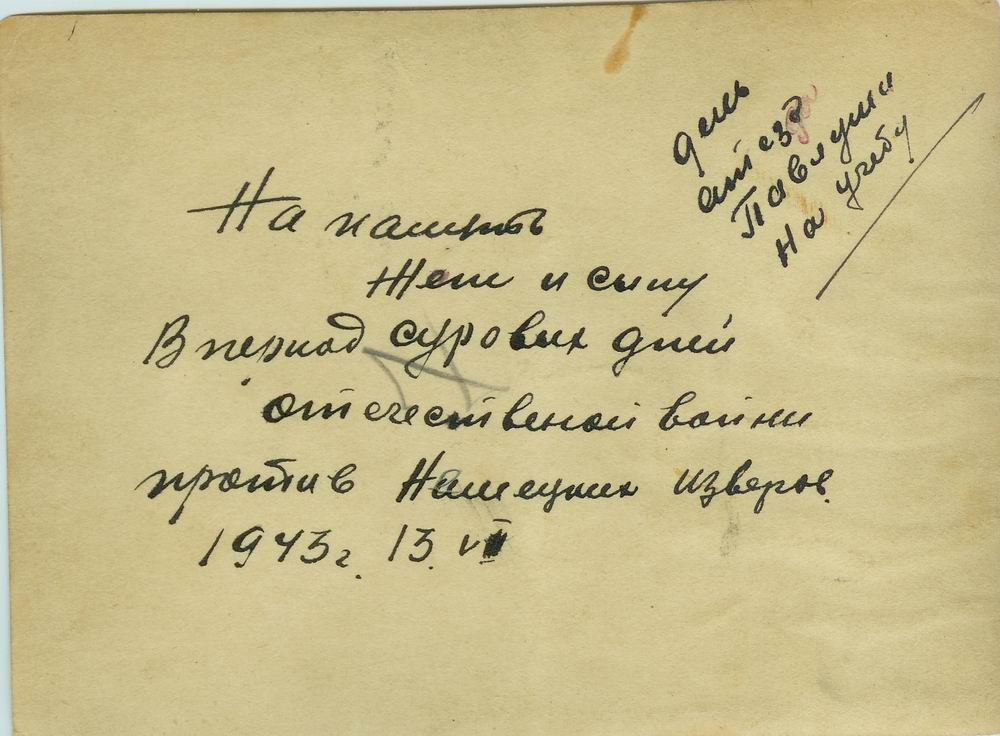 день
отезда
Павлуши
на учебу
На памить
Жене и сыну
В период суровых дней
отечественой войни
против Немецких изверов.
1943г. 13. VII